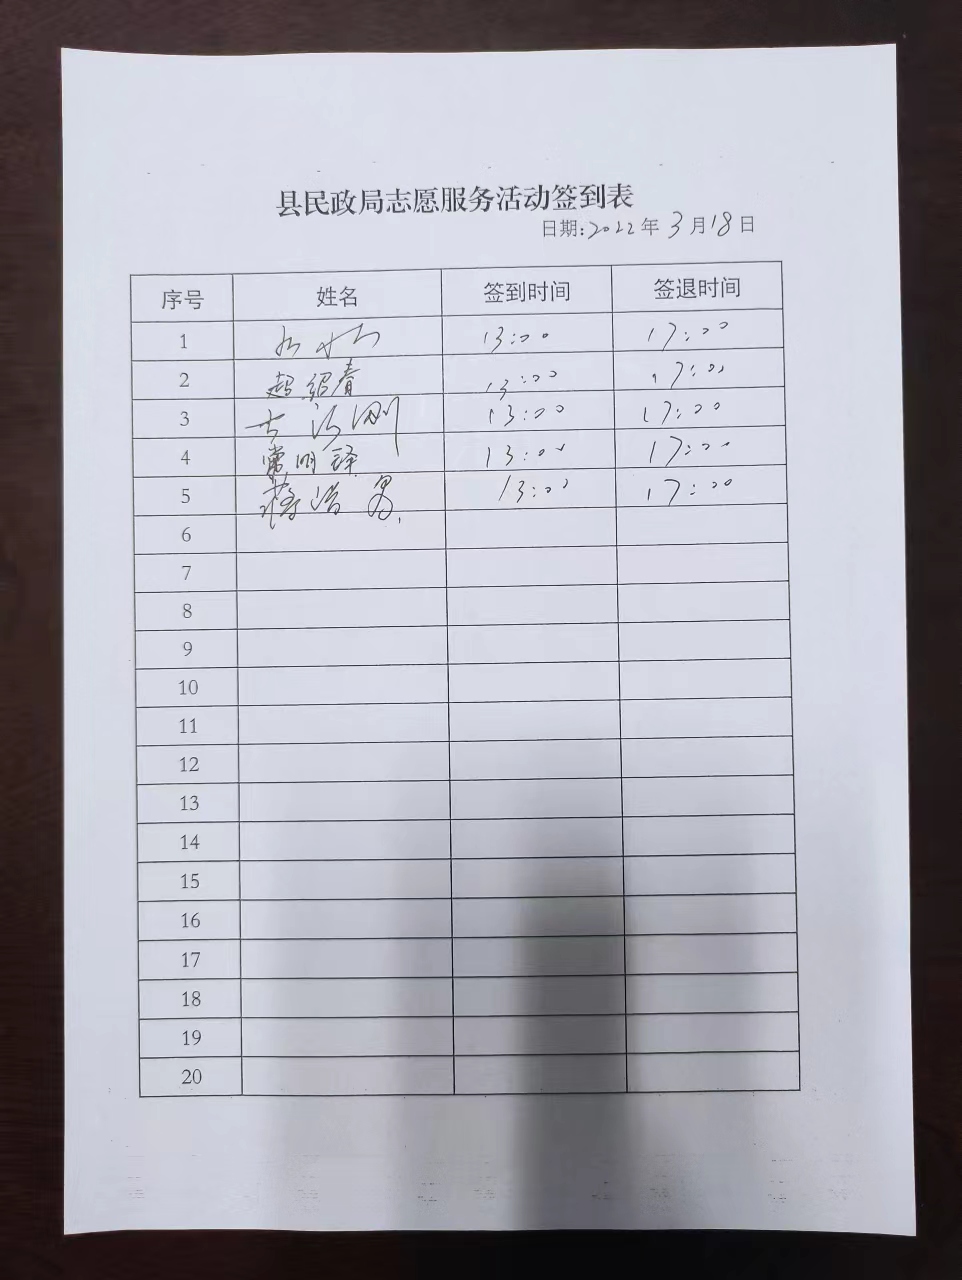 县民政局志愿服务活动签到表
日期:2022年3月18日
序号 姓名 签到时间 签退时间
1 13:00 17:00
2 赵绍春 13:00 17:00
3 13:00 17:00
4 常明译 13:00 17:00
5 13:00 17:00
6
7
8
9
10
11
12
13
14
15
16
17
18
19
20